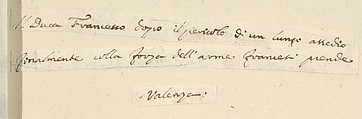 Il Duca Francesco dopo il pericolo di un lungo assedio
finalmente colla forza dell'arme francesi prende
Valenza.